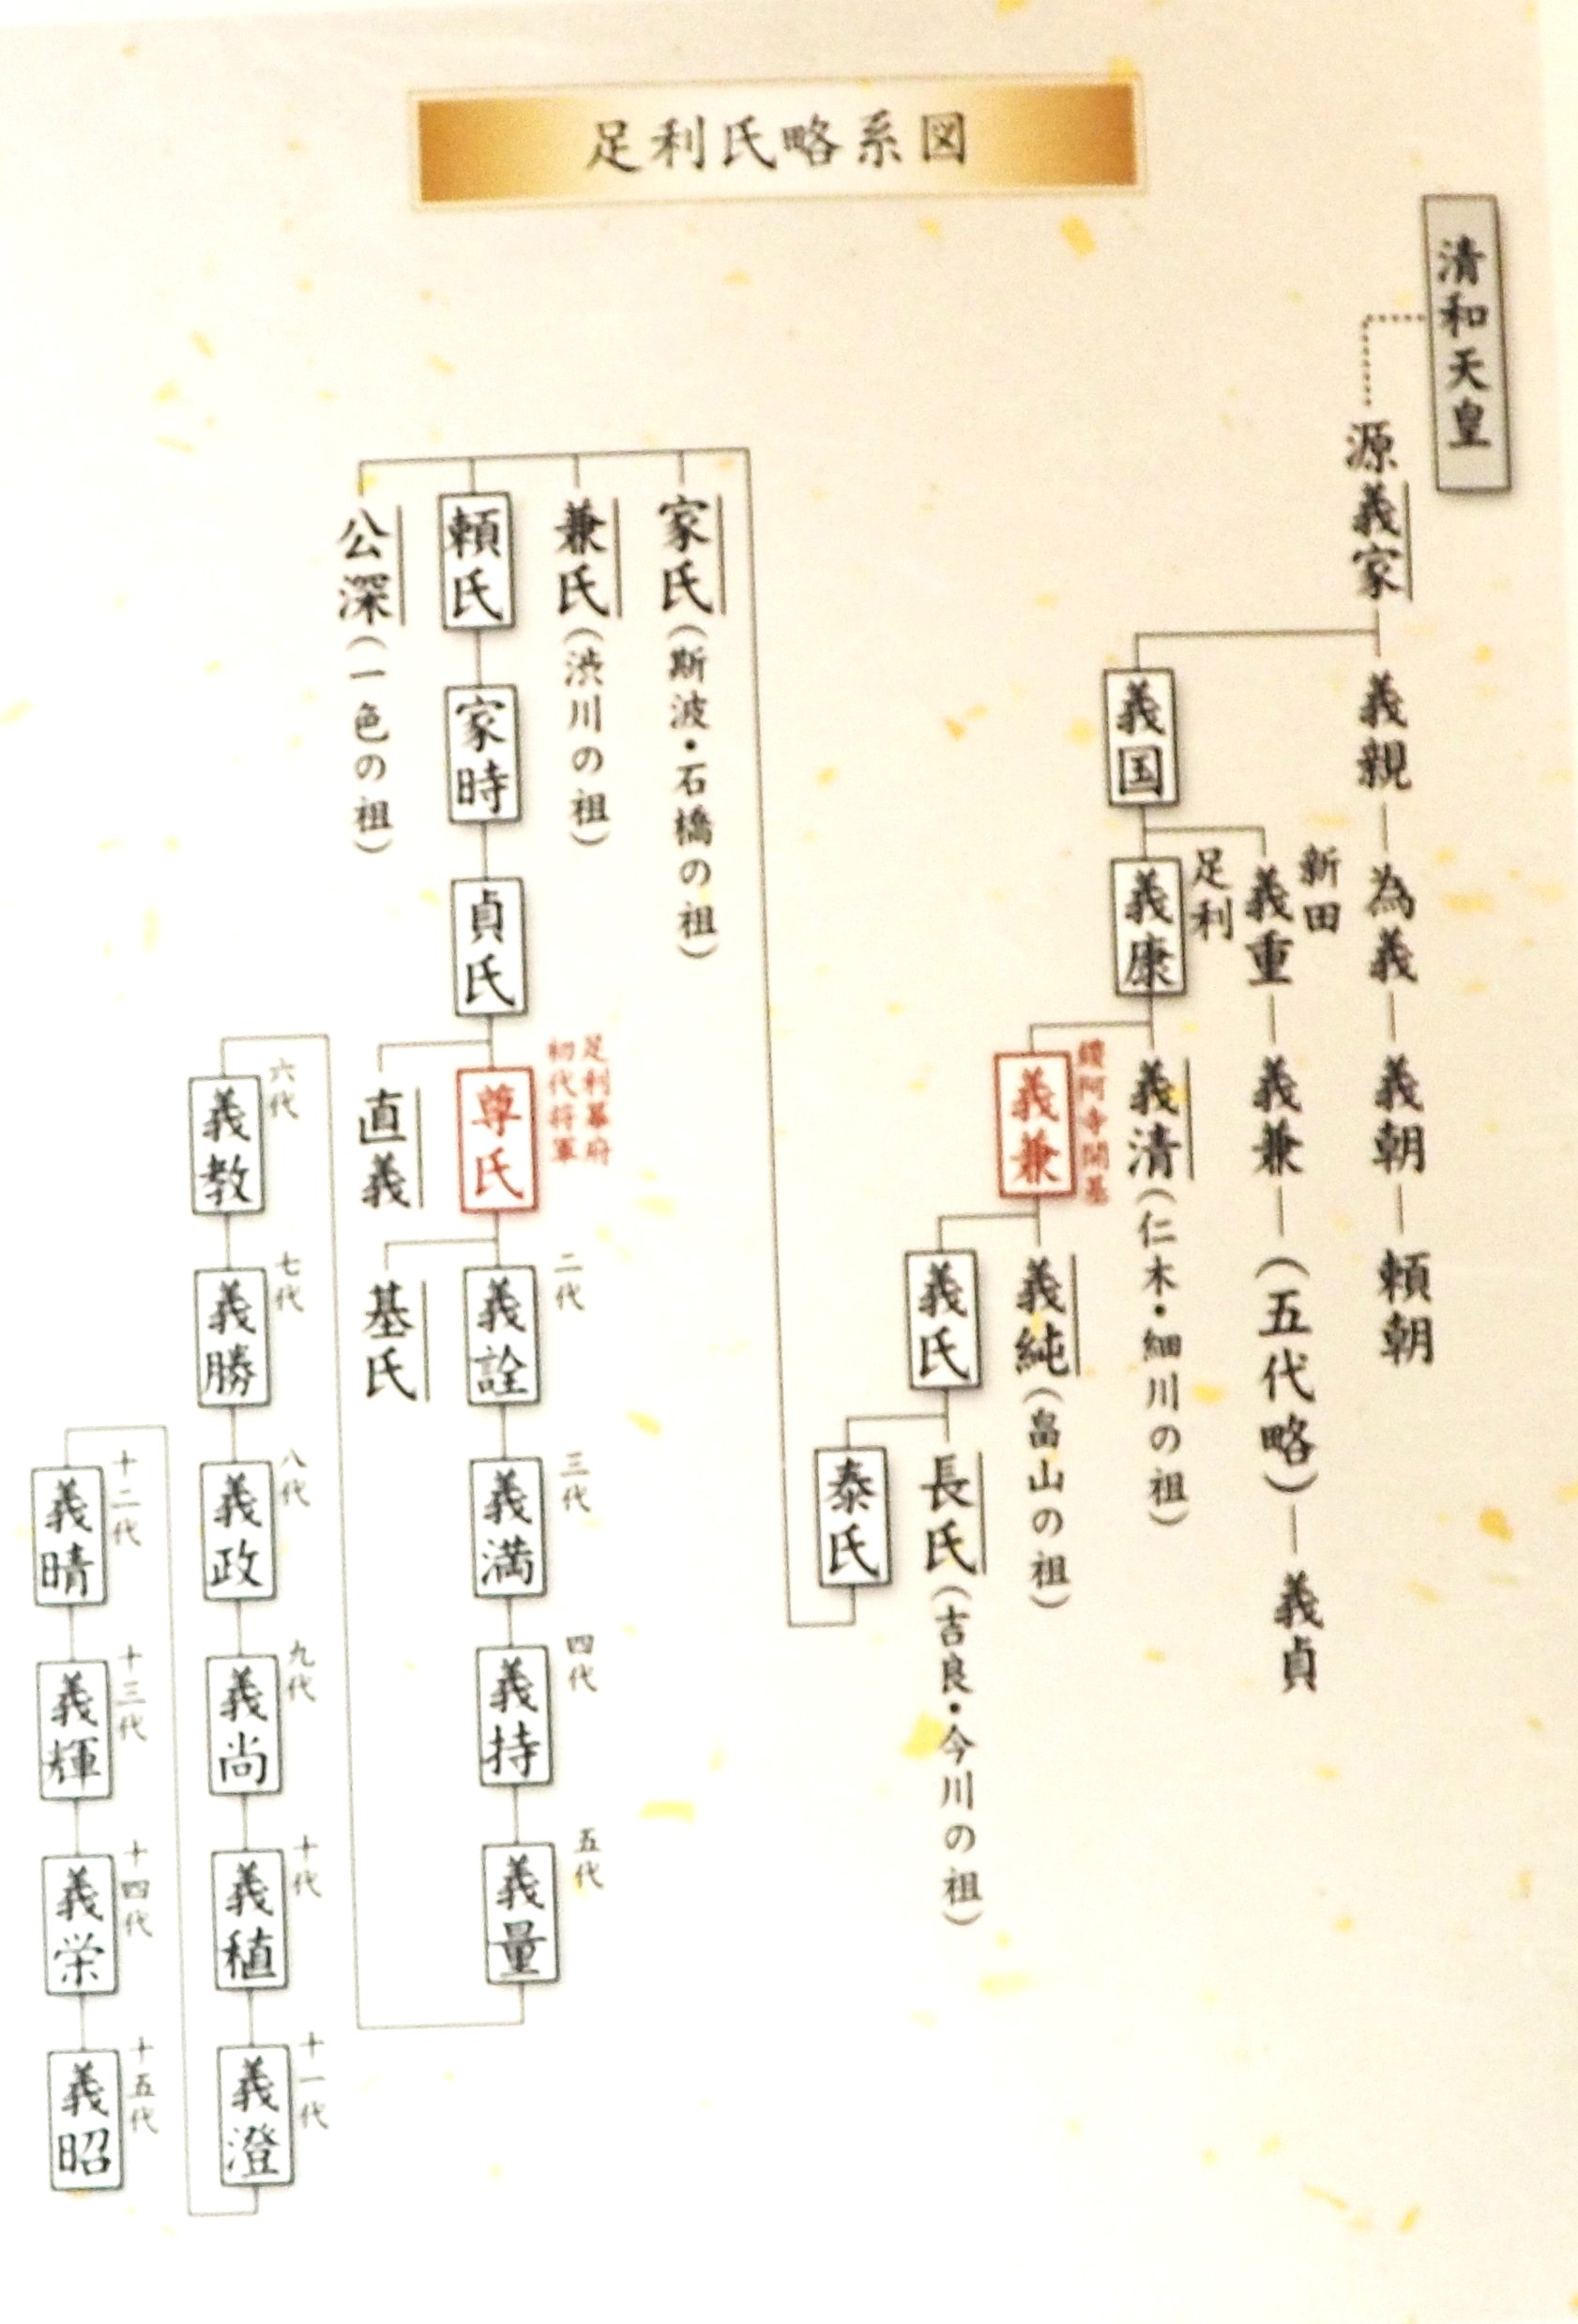 足利氏略系図
清和天皇
源義家
義親
為義
義朝
頼朝
義国
新田
義重
義兼
(五代略)
義貞
足利
義康
義清(仁木・細川の祖)
鑁阿寺開基
義兼
義純(畠山の祖)
義氏
長氏(吉良・今川の祖)
泰氏
家氏(斯波・石橋の祖)
兼氏(渋川の祖)
頼氏
公深(一色の祖)
家時
貞氏
足利幕府
初代将軍
尊氏
直義
二代
義詮
基氏
三代
義満
四代
義持
五代
義量
六代
義教
七代
義勝
八代
義政
九代
義尚
十代
義稙
十一代
義澄
十二代
義晴
十三代
義輝
十四代
義栄
十五代
義昭